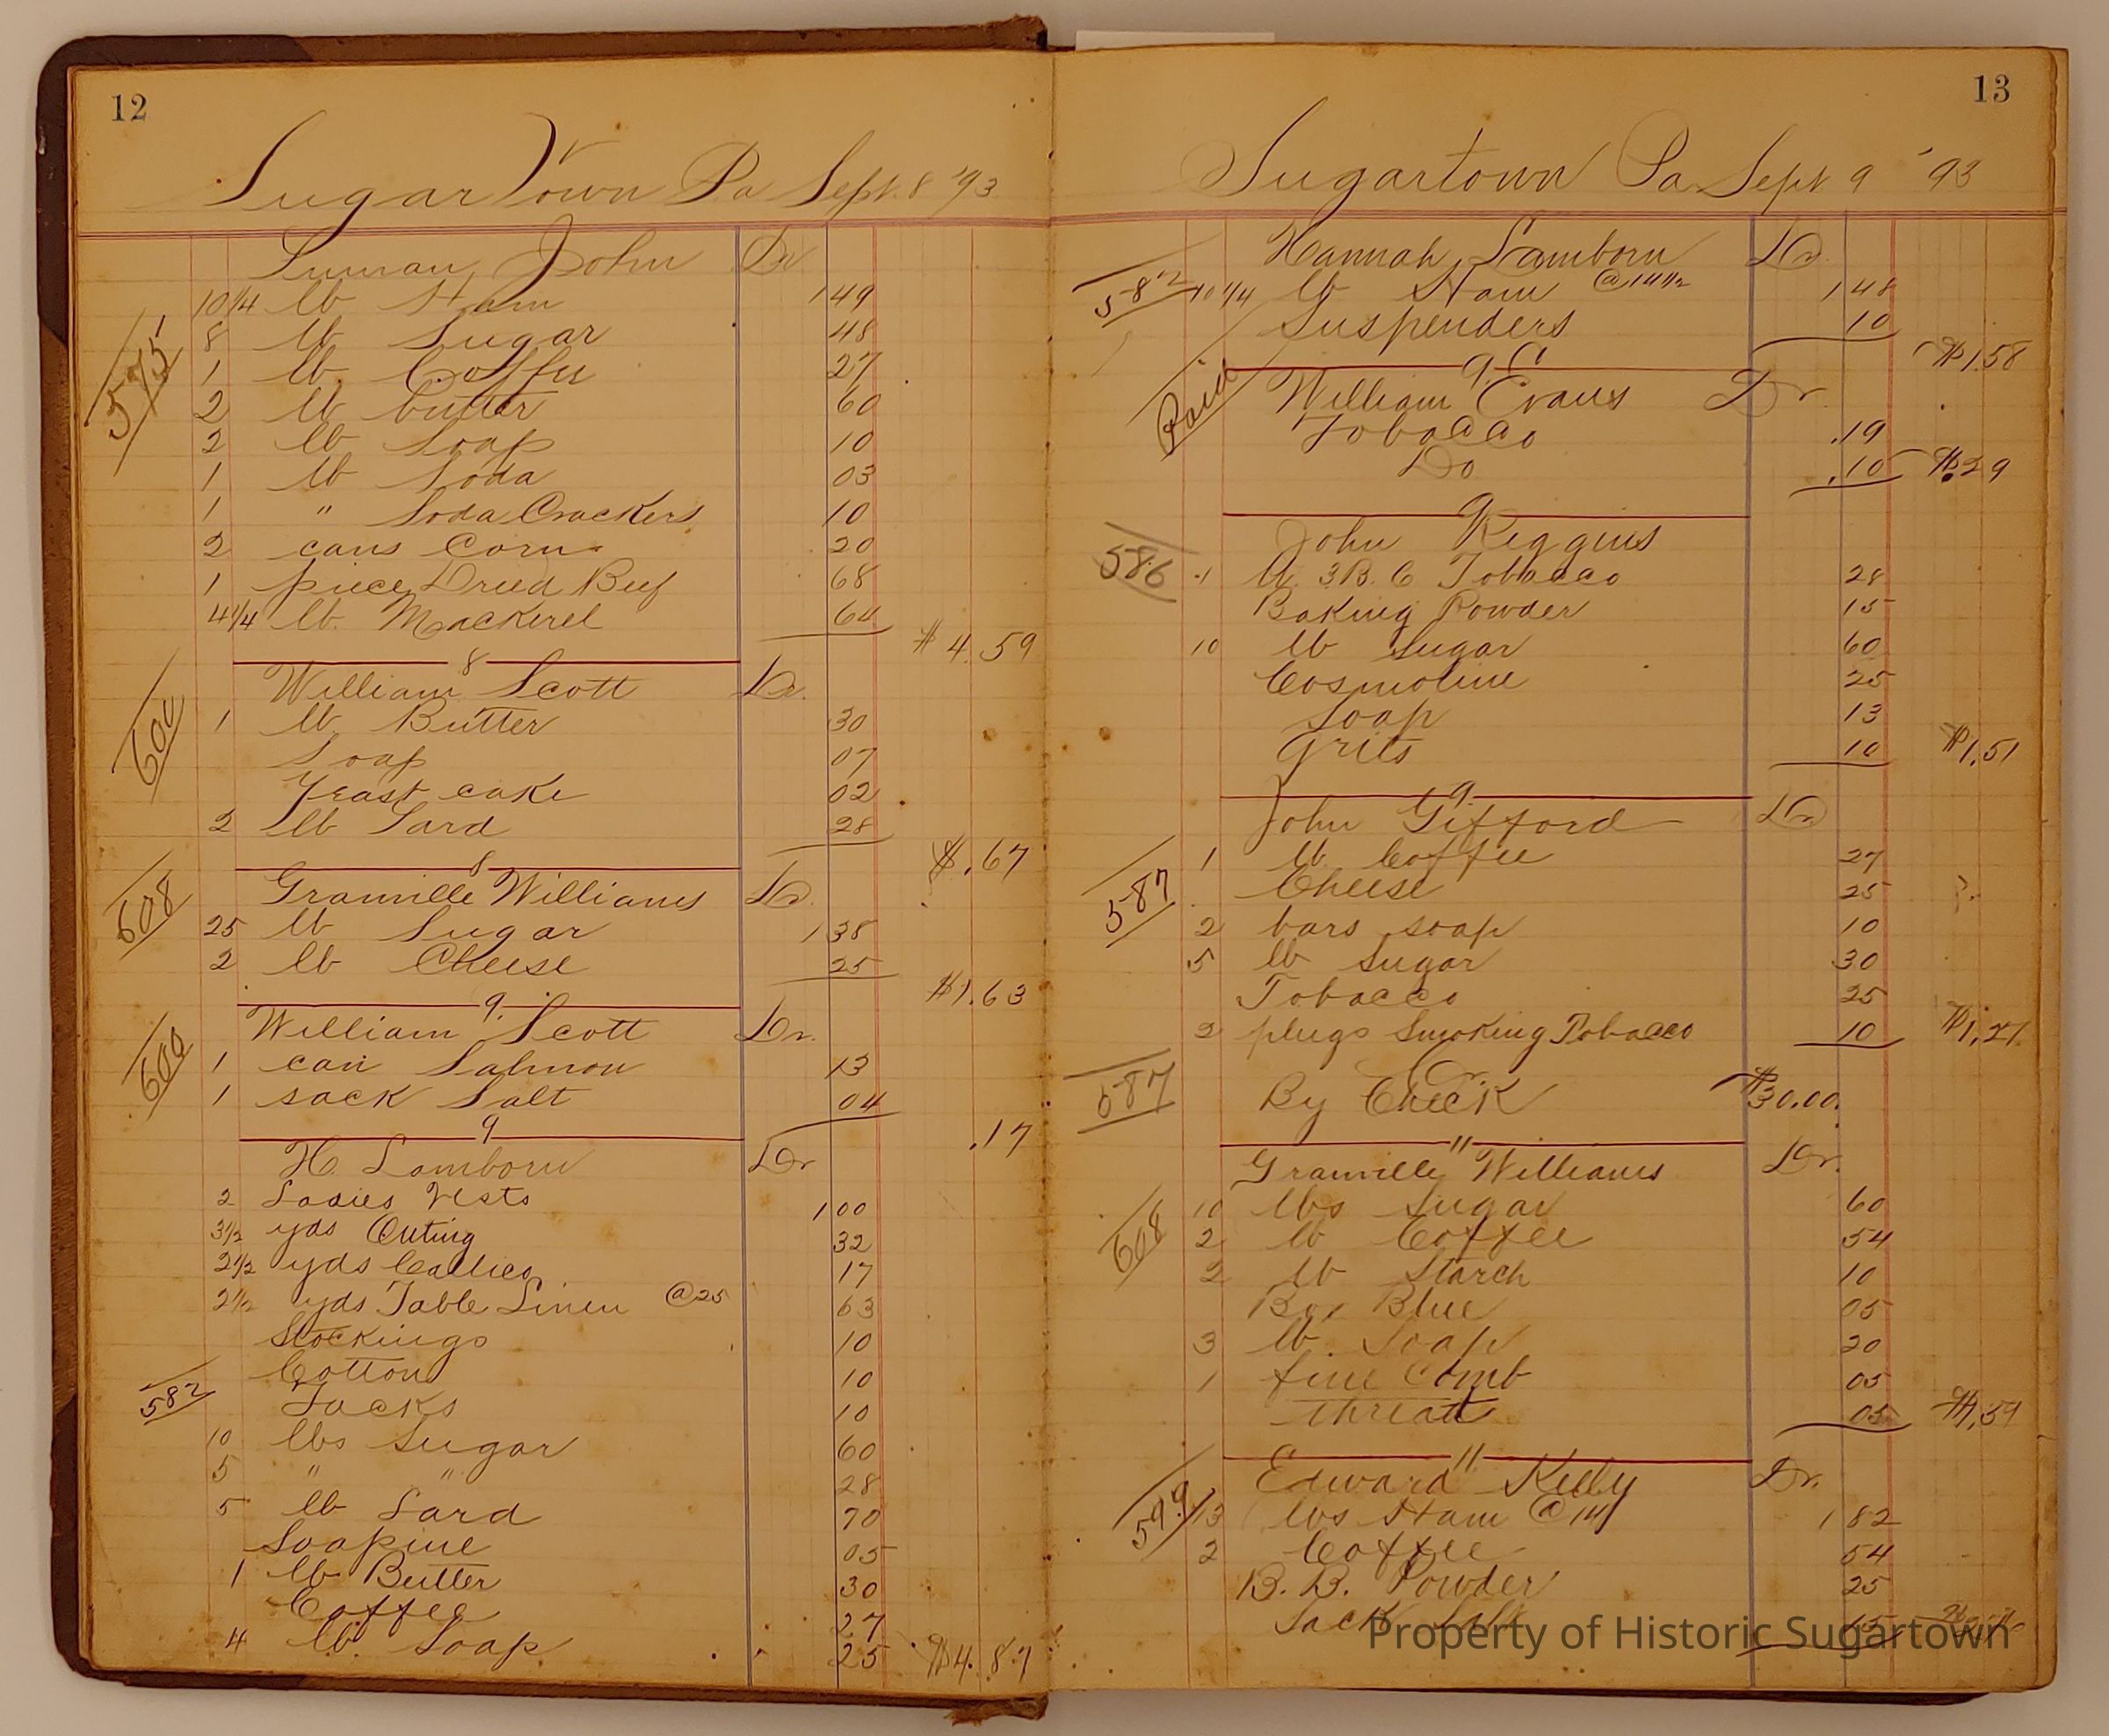 12
Sugar Town Pa Sept. 8 '93
John Dr
575
10 1/4 lb Ham 1 49
8 lb Sugar 48
1 lb. Coffee 27
2 lb butter 60
2 lb Soap 10
1 lb Soda 03
1 " Soda Crackers 10
2 cans Corn 20
1 piece Dried Beef 68
4 1/4 lb. Mackerel 64
$4.59
8
William Scott Dr.
600
1 lb. Butter 30
Soap 07
Yeast cake 02
2 lb Lard 28
$.67
8
608
Granville Williams Dr.
25 lb Sugar 1 38
2 lb Cheese 25
$1.63
9
William Scott Dr.
600
1 can Salmon 13
1 sack Salt 04
.17
9
H. Lamborn Dr
2 Ladies Vests 1 00
3 1/2 yds Outing 32
2 1/2 yds Callico 17
2 1/2 yds Table Linen @25 63
Stockings 10
Cotton 10
582
Tacks 10
10 lbs Sugar 60
5 " " 28
5 lb Lard 70
Soapine 05
1 lb Butter 30
Coffee 27
4 lb. Soap 25
$4.87
13
Sugartown Pa Sept 9 '93
Hannah Lamborn Dr.
582
10 1/4 lb Ham @14 1/2 1 48
Suspenders 10
$1.58
9
Paid
William Evans Dr.
Tobacco .19
Do .10 $.29
9
John Riggins
586
1 lb. 3 B. C Tobacco 28
Baking Powder 15
10 lb Sugar 60
Cosmoline 25
Soap 13
Grits 10 $1.51
9
John Gifford Dr
587
1 lb. Coffee 27
Cheese 25
2 bars soap 10
5 lb Sugar 30
Tobacco 25
2 plugs Smoking Tobacco 10 $1.27
Cr.
587
By Check $30.00
11
Granville Williams Dr.
608
10 lbs Sugar 60
2 lb Coffee 54
2 lb Starch 10
Box Blue 05
3 lb. Soap 20
1 fine Comb 05
thread 05 $1.59
11
Edward Kelly Dr.
599
13 lbs Ham @14 1 82
2 Coffee 54
B. B. Powder 25
Sack Salt 15
Property of Historic Sugartown